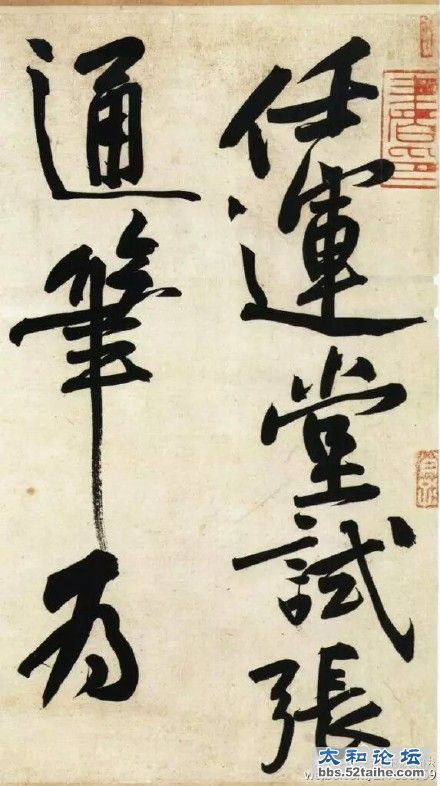 任運堂試張
通筆为
太和论坛
bbs.52taihe.com